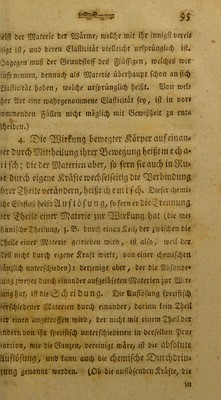 95
selst der Materie der Wärme, welche mit ihr innigst verei-
nigt ist, und deren Elasticität vielleicht ursprünglich ist.
Dagegen muß der Grundstoff des Flüßigen, welches wie
Luft nennen, dennoch als Materie überhaupt schon an sich
Elasticität haben, welche ursprünglich heißt. Von wel-
cher Art eine wahrgenommene Elasticität sey, ist in vor-
kommenden Fällen nicht möglich mit Gewißheit zu ent-
scheiden.)
4. Die Wirkung bewegter Körper auf einan-
der durch Mittheilung ihrer Bewegung heißt mecha-
nisch; die der Materien aber, so fern sie auch in Ru-
he durch eigene Kräfte wechselseitig die Verbindung
ihrer Theile verändern, heißt chemisch. Dieser chemi-
sche Einfluß heißt Auflösung, so fern er die Trennung
der Theile einer Materie zur Wirkung hat (die me-
chanische Theilung, z. B. durch einen Keil, der zwischen die
Theile einer Materie getrieben wird, ist also, weil der
Keil nicht durch eigene Kraft wirkt, von einer chemischen
gänzlich unterschieden): derjenige aber, der die Absonde-
rung zweyer durch einander aufgelöseten Materien zur Wir-
kung hat, ist die Scheidung. Die Auflösung specifisch
verschiedener Materien durch einander, darinn kein Theil
der einen angetroffen wird, der nicht mit einem Theil der
andern von ihr specifisch unterschiedenen in derselben Pro-
portion, wie die Ganzen, vereinigt wäre, ist die absolute
Auflösung, und kann auch die chemische Durchdrin-
gung genannt werden. (Ob die auflösenden Kräfte, die
in